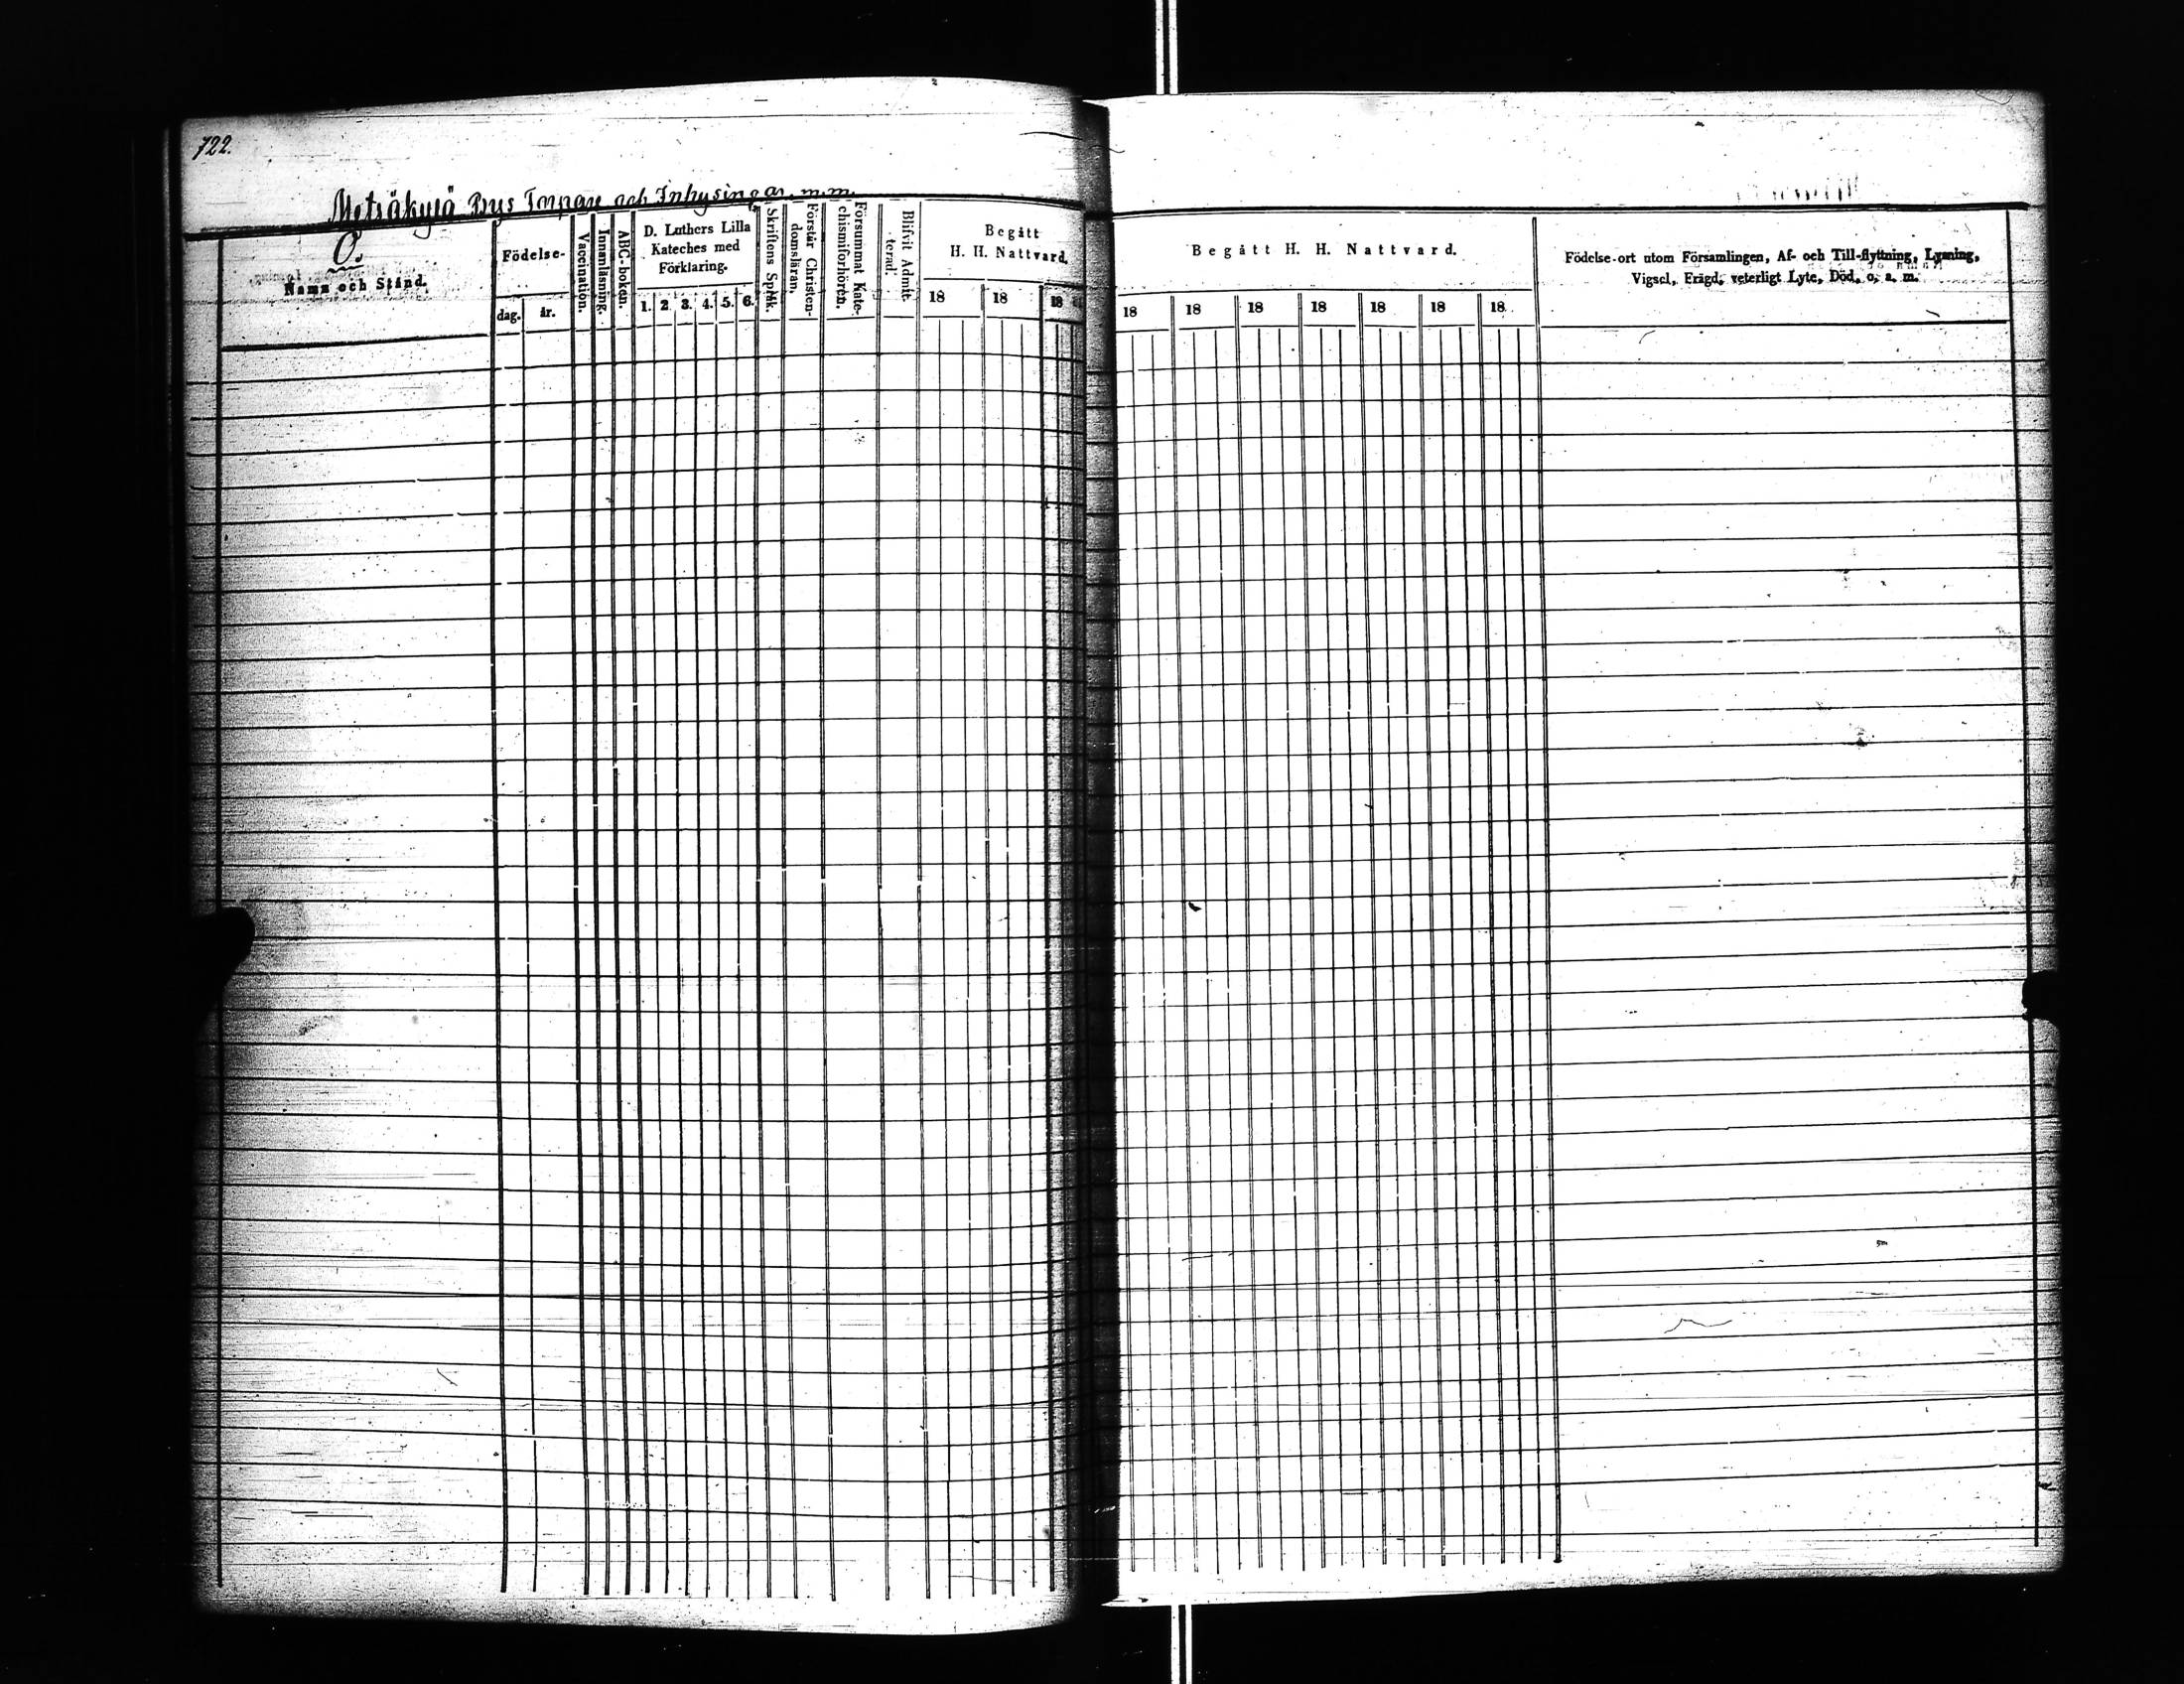 722.
Metsäkylä Bys Torpare och Inhysingar m.m.
O.
Namn och Stånd.
Födelse-
dag.
år.
Vaccination.
Innanläsning.
ABC-boken.
D. Luthers Lilla
Kateches med
Förklaring.
1. 2. 3. 4. 5. 6.
Skriftens Språk.
Förstår Christen-
domsläran.
Försummat Kate-
chismiförhören.
Blifvit Admit-
terad.
Begått
H. H. Nattvard.
18 18 18
Begått H. H. Nattvard.
18 18 18 18 18 18 18
Födelse-ort utom Församlingen, Af- och Till-flyttning, Lysning,
Vigsel, Erägd, veterligt Lyte, Död, o. s. m.